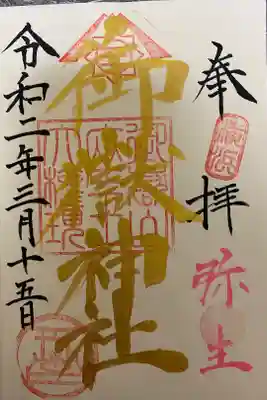 奉拝
弥生
御嶽神社
令和二年三月十五日